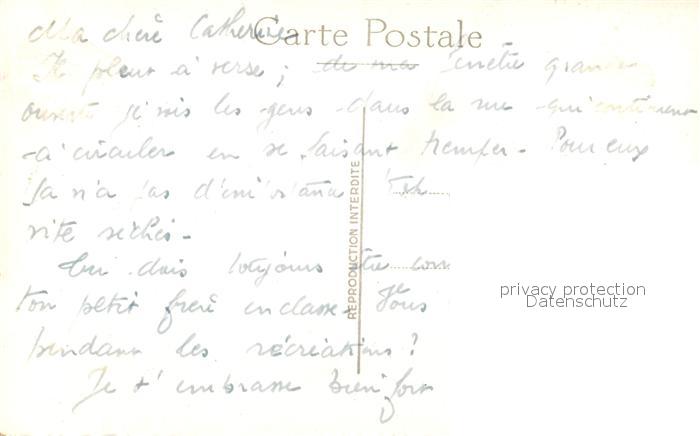 Ma chère Catherine
Carte Postale
Il pleut à verse ; de ma fenêtre grande
ouverte je vois les gens dans la rue qui continuent
à circuler en se faisant tremper - Pour eux
ça n'a pas d'importance
vite séchés -
Tu dois toujours être
ton petit frère en classe - Je vous
pendant les récréations ?
Je t'embrasse bien fort
REPRODUCTION INTERDITE
privacy protection
Datenschutz